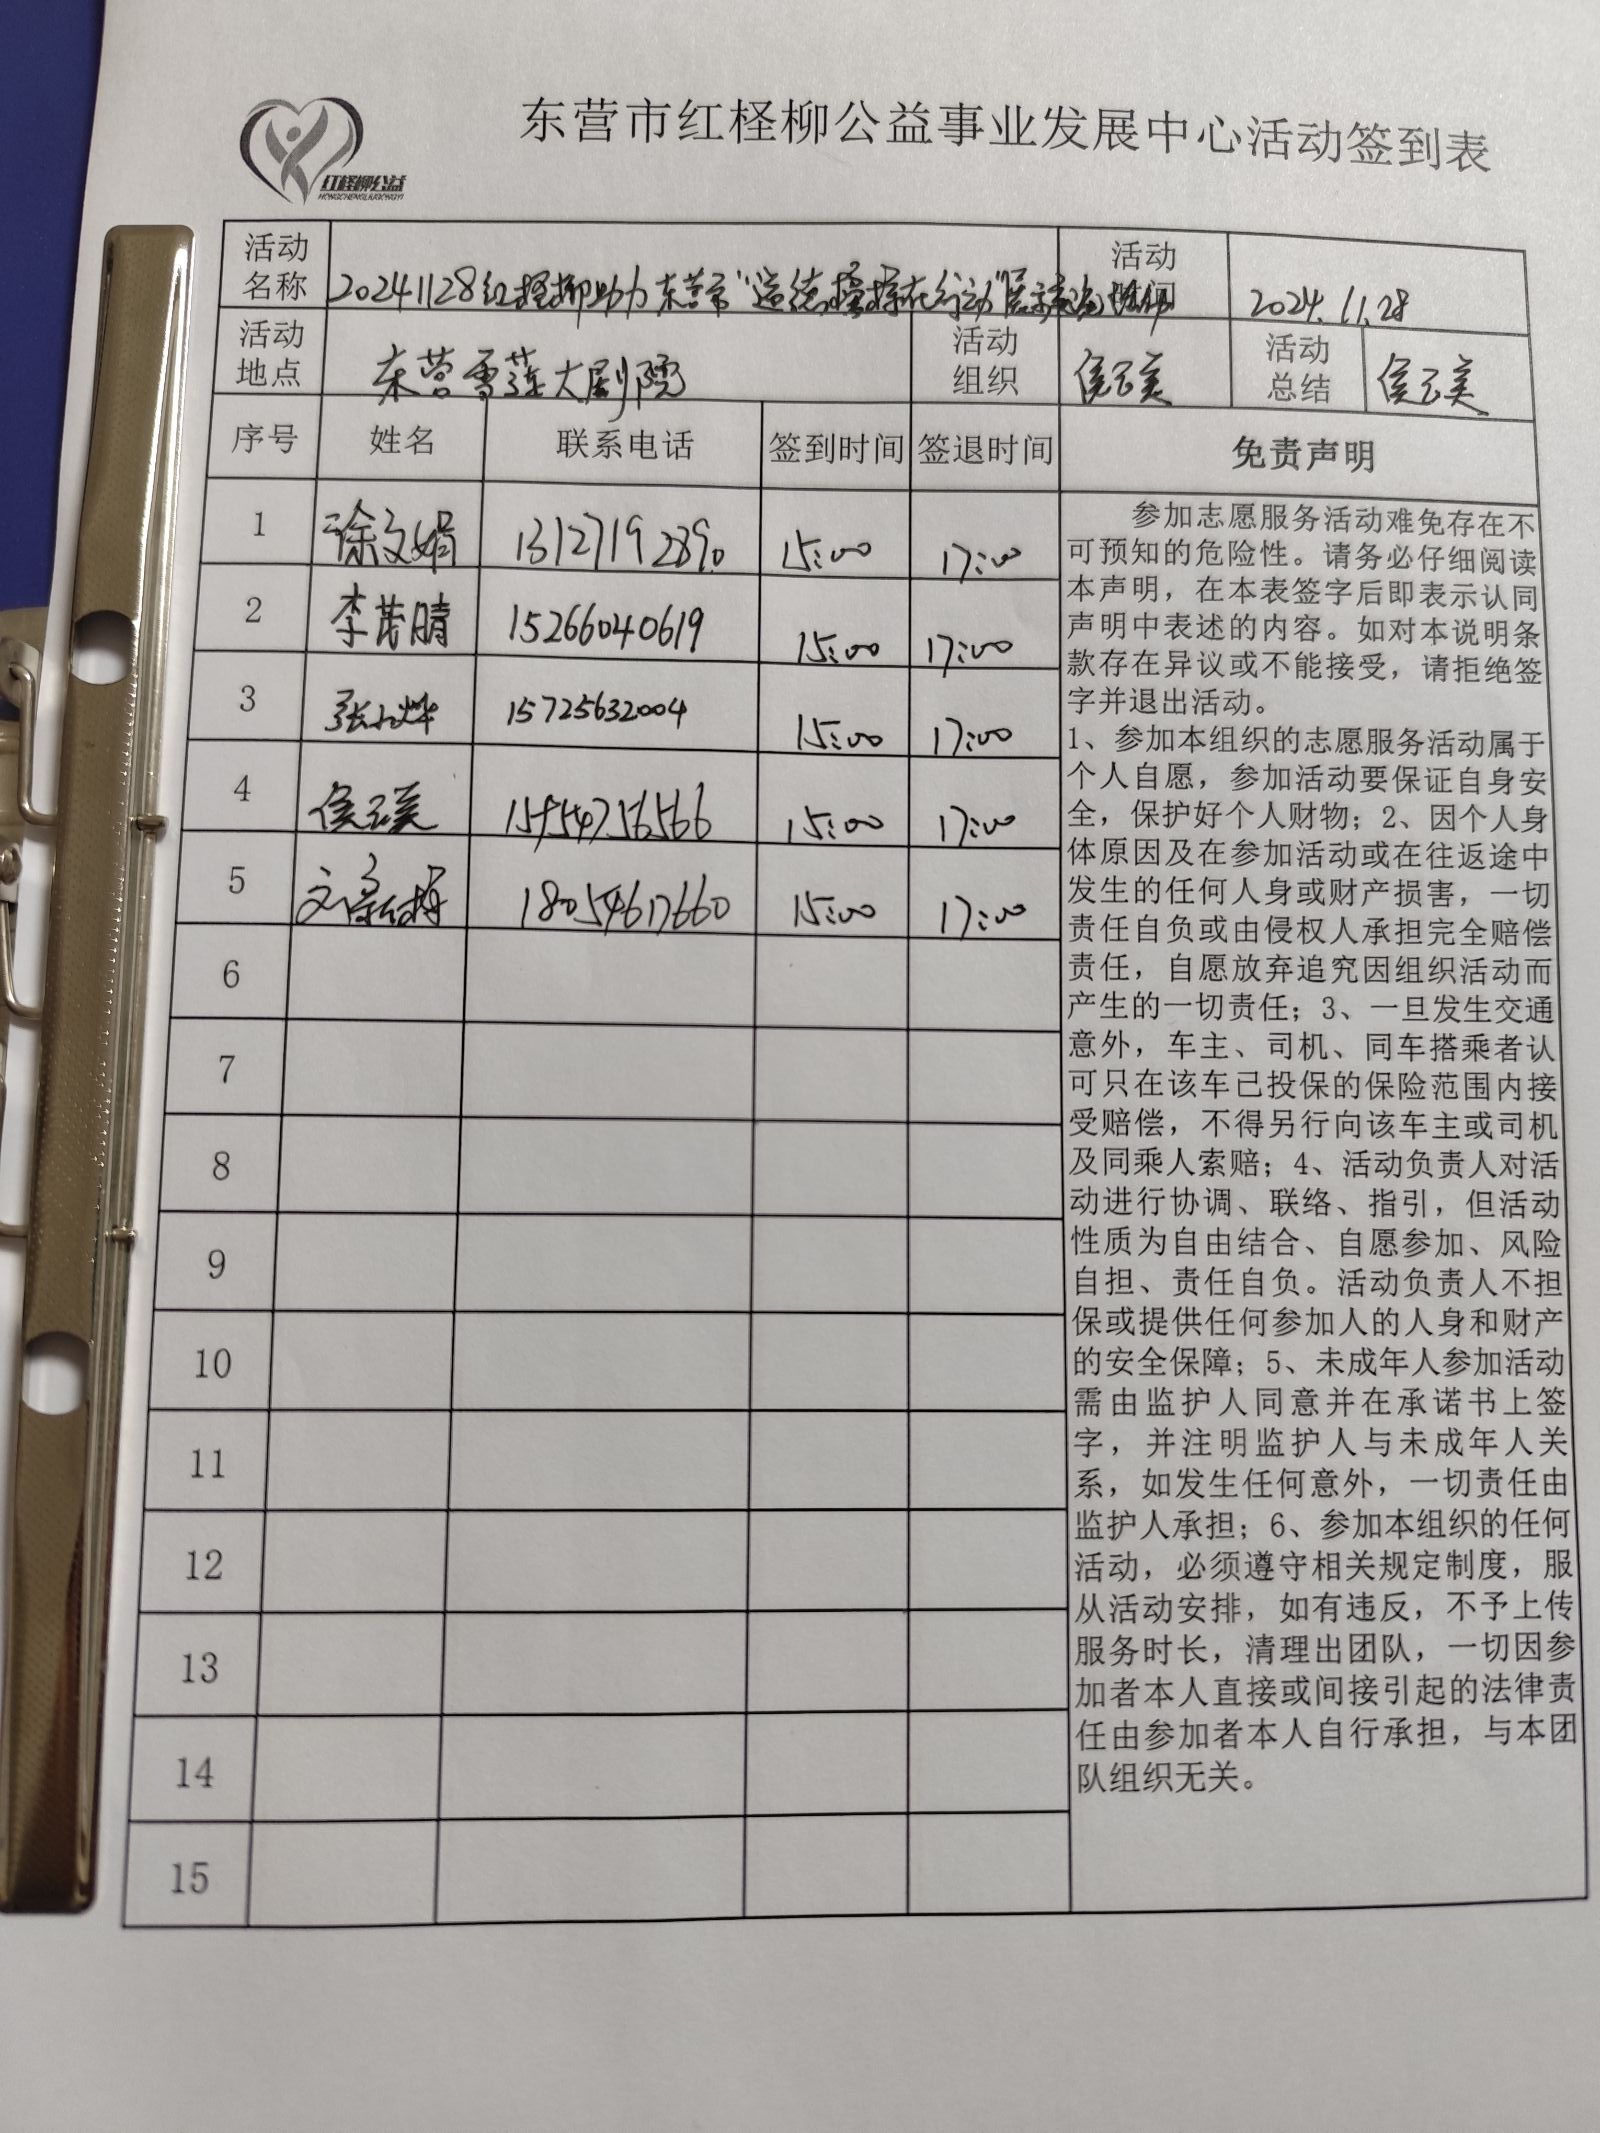 东营市红柽柳公益事业发展中心活动签到表
红柽柳公益
HONGCHENGLIUGONGYI
活动名称 20241128红柽柳助力东营市"道德 在行动"展示 活动时间 2024.11.28
活动地点 东营雪莲大剧院 活动组织 侯云美 活动总结 侯云美
序号 姓名 联系电话 签到时间 签退时间 免责声明
1 徐文娟 13127192890 15:00 17:00
2 李茂晴 15266040619 15:00 17:00
3 张 烨 15725632004 15:00 17:00
4 侯云美 15954756566 15:00 17:00
5 18054617660 15:00 17:00
6
7
8
9
10
11
12
13
14
15
参加志愿服务活动难免存在不
可预知的危险性。请务必仔细阅读
本声明，在本表签字后即表示认同
声明中表述的内容。如对本说明条
款存在异议或不能接受，请拒绝签
字并退出活动。
1、参加本组织的志愿服务活动属于
个人自愿，参加活动要保证自身安
全，保护好个人财物；2、因个人身
体原因及在参加活动或在往返途中
发生的任何人身或财产损害，一切
责任自负或由侵权人承担完全赔偿
责任，自愿放弃追究因组织活动而
产生的一切责任；3、一旦发生交通
意外，车主、司机、同车搭乘者认
可只在该车已投保的保险范围内接
受赔偿，不得另行向该车主或司机
及同乘人索赔；4、活动负责人对活
动进行协调、联络、指引，但活动
性质为自由结合、自愿参加、风险
自担、责任自负。活动负责人不担
保或提供任何参加人的人身和财产
的安全保障；5、未成年人参加活动
需由监护人同意并在承诺书上签
字，并注明监护人与未成年人关
系，如发生任何意外，一切责任由
监护人承担；6、参加本组织的任何
活动，必须遵守相关规定制度，服
从活动安排，如有违反，不予上传
服务时长，清理出团队，一切因参
加者本人直接或间接引起的法律责
任由参加者本人自行承担，与本团
队组织无关。